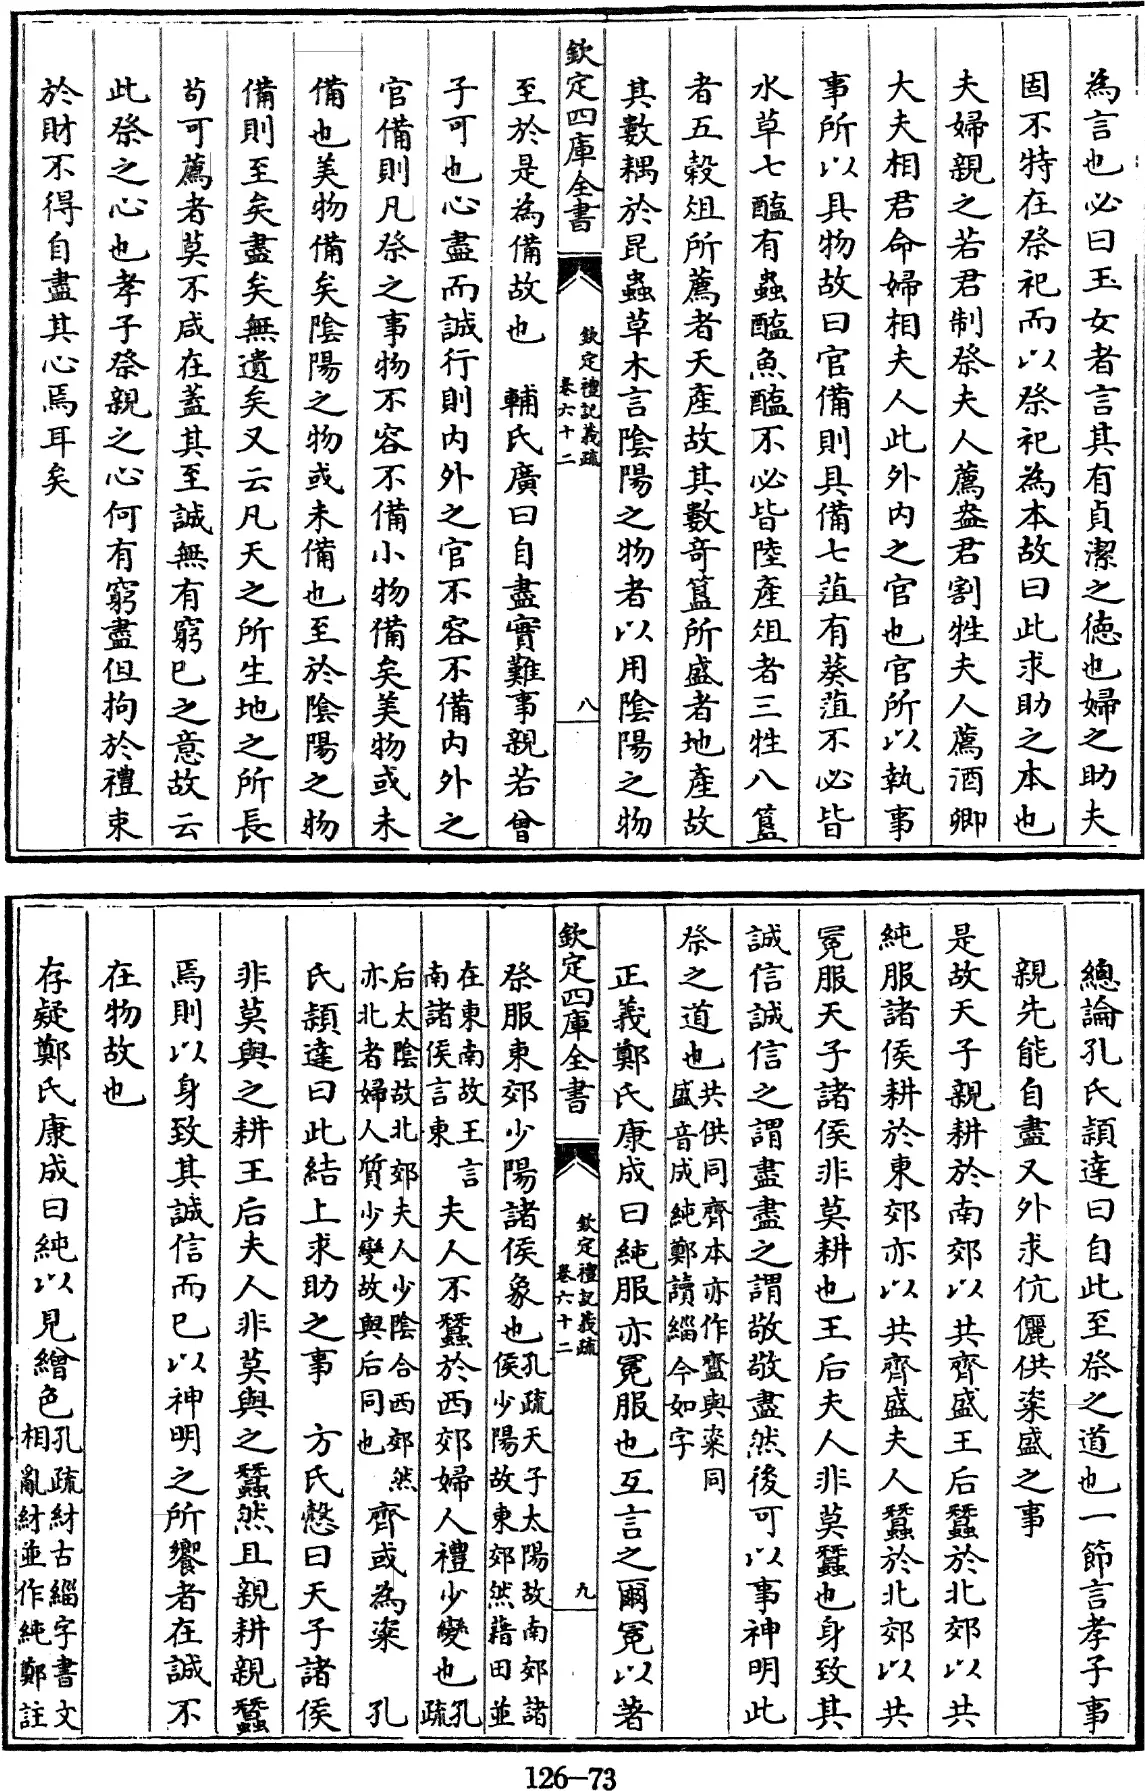 為言也必曰玉女者言其有貞潔之徳也婦之助夫
固不特在祭祀而以祭祀為本故曰此求助之本也
夫婦親之若君制祭夫人薦盎君割牲夫人薦酒卿
大夫相君命婦相夫人此外内之官也官所以執事
事所以具物故曰官備則具備七菹有葵菹不必皆
水草七醢有蟲醢魚醢不必皆陸産俎者三牲八簋
者五穀俎所薦者天産故其數竒簋所盛者地産故
其數耦於昆蟲草木言陰陽之物者以用陰陽之物
欽定四庫全書
欽定禮記義疏
卷六十二
八
至於是為備故也　輔氏廣曰自盡實難事親若曾
子可也心盡而誠行則内外之官不容不備内外之
官備則凡祭之事物不容不備小物備矣美物或未
備也美物備矣陰陽之物或未備也至於陰陽之物
備則至矣盡矣無遺矣又云凡天之所生地之所長
茍可薦者莫不咸在蓋其至誠無有窮已之意故云
此祭之心也孝子祭親之心何有窮盡但拘於禮束
於財不得自盡其心焉耳矣
總論孔氏穎達曰自此至祭之道也一節言孝子事
親先能自盡又外求伉儷供粢盛之事
是故天子親耕於南郊以共齊盛王后蠶於北郊以共
純服諸侯耕於東郊亦以共齊盛夫人蠶於北郊以共
冕服天子諸侯非莫耕也王后夫人非莫蠶也身致其
誠信誠信之謂盡盡之謂敬敬盡然後可以事神明此
祭之道也共供同齊本亦作齍與粢同
盛音成純鄭讀緇今如字
正義鄭氏康成曰純服亦冕服也互言之爾冕以著
欽定四庫全書
欽定禮記義疏
卷六十二
九
祭服東郊少陽諸侯象也孔疏天子太陽故南郊諸
侯少陽故東郊然藉田並
在東南故王言
南諸侯言東
夫人不蠶於西郊婦人禮少變也孔
疏
后太陰故北郊夫人少陰合西郊然
亦北者婦人質少變故與后同也
齊或為粢　孔
氏穎達曰此結上求助之事　方氏慤曰天子諸侯
非莫與之耕王后夫人非莫與之蠶然且親耕親蠶
焉則以身致其誠信而已以神明之所饗者在誠不
在物故也
存疑鄭氏康成曰純以見繒色孔疏紂古緇字書文
相亂紂並作純鄭註
126-73